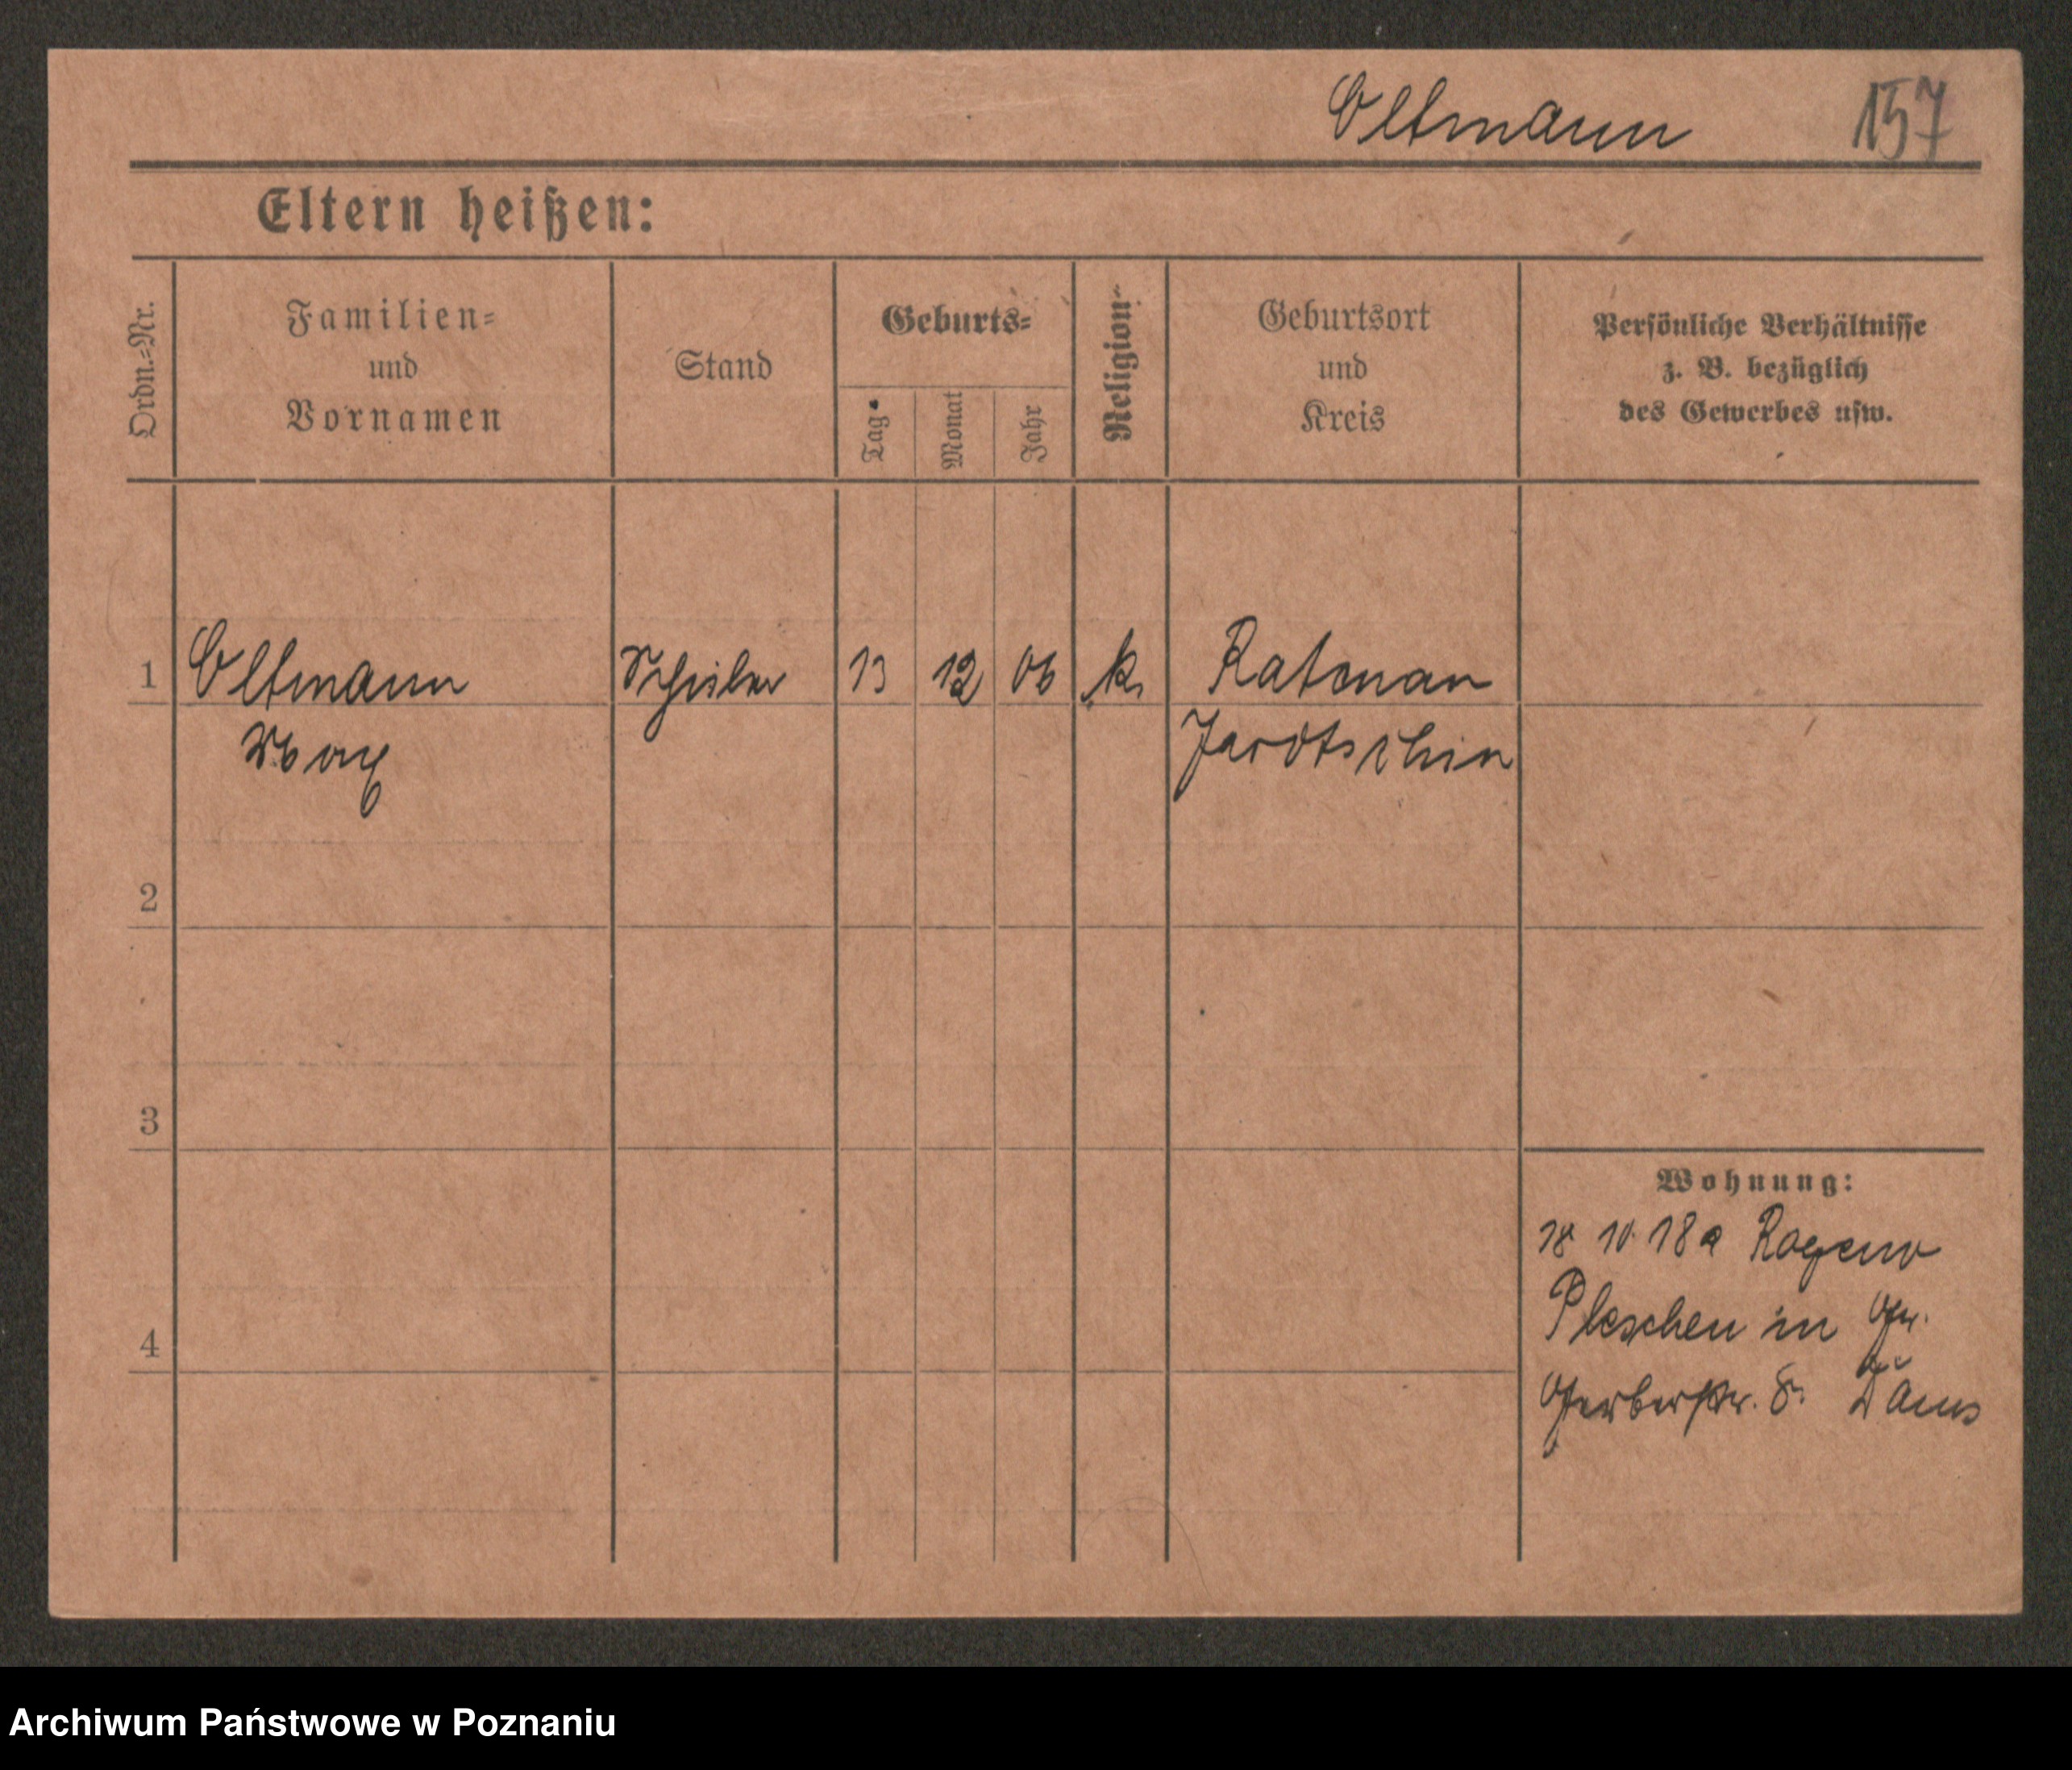 Oltmann 157
Eltern heißen:
Ordn.-Nr.
Familien-
und
Vornamen
Stand
Geburts-
Tag
Monat
Jahr
Religion
Geburtsort
und
Kreis
Persönliche Verhältnisse
z. B. bezüglich
des Gewerbes usw.
1 Oltmann Schüler 13 12 06 k. Ratenau
Max Jarotschin
2
3
4
Wohnung:
18 10 18 a
Pleschen in Gr.
Gerberstr. 8.
Archiwum Państwowe w Poznaniu